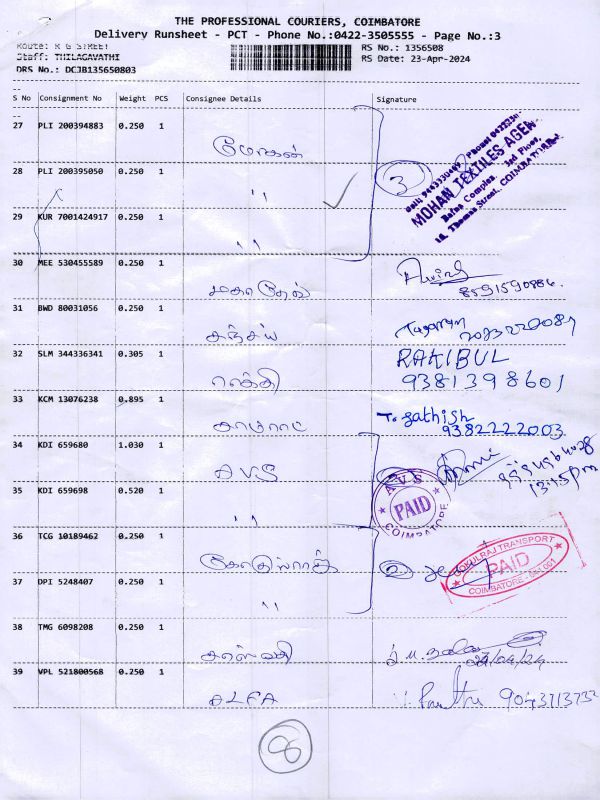 THE PROFESSIONAL COURIERS, COIMBATORE
Delivery Runsheet - PCT - Phone No.:0422-3505555 - Page No.:3
Route: R G STREET
RS No.: 1356508
Staff: THILAGAVATHI
RS Date: 23-Apr-2024
DRS No.: DCJB135650803
S No Consignment No Weight PCS Consignee Details Signature
27 PLI 200394883 0.250 1
மோகன்
28 PLI 200395050 0.250 1
" 3
MOHAN TEXTILES AGEN
29 KUR 7001424917 0.250 1
"
30 MEE 530455589 0.250 1
மகாதேவ்
8591590986.
31 BWD 80031056 0.250 1
சஞ்சய்
32 SLM 344336341 0.305 1
RAKIBUL
ராக்கி 9381398601
33 KCM 13076238 0.895 1
To Sathish
காமராட் 9382222003
34 KDI 659680 1.030 1
AVS
35 KDI 659698 0.520 1
"
AVS
PAID
COIMBATORE
13:45pm
36 TCG 10189462 0.250 1
கோகுல்ராஜ் 2
GOKULRAJ TRANSPORT
PAID
COIMBATORE - 641 001
37 DPI 5248407 0.250 1
"
38 TMG 6098208 0.250 1
சரஸ்வதி
23/04/24
39 VPL 521800568 0.250 1
ALFA 9043713732